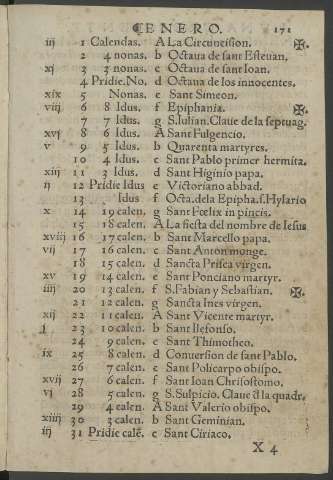 ENERO. 171
iij 1 Calendas. A La Circuncision. ✠
2 4 nonas. b Octaua de sant Esteuan.
xj 3 3 nonas. c Octaua de sant Ioan.
4 Pridie.No. d Octaua de los innocentes.
xix 5 Nonas. e Sant Simeon.
viij 6 8 Idus. f Epiphania. ✠
7 7 Idus. g S.Iulian.Claue de la septuag.
xvj 8 6 Idus. A Sant Fulgencio.
v 9 5 Idus. b Quarenta martyres.
10 4 Idus. c Sant Pablo primer hermita.
xiij 11 3 Idus. d Sant Higinio papa.
ij 12 Pridie Idus e Victoriano abbad.
13 Idus f Octa.dela Epipha.s.Hylario
x 14 19 calen. g Sant Fœlix in pincis.
15 18 calen. A La fiesta del nombre de Iesus
xviij 16 17 calen. b Sant Marcello papa.
vij 17 16 calen. c Sant Anton monge.
18 15 calen. d Sancta Prisca virgen.
xv 19 14 calen. e Sant Ponciano martyr.
iiij 20 13 calen. f S.Fabian y Sebastian. ✠
21 12 calen. g Sancta Ines virgen.
xij 22 11 calen. A Sant Vicente martyr.
j 23 10 calen. b Sant Ilefonso.
24 9 calen. c Sant Thimotheo.
ix 25 8 calen. d Conuersion de sant Pablo.
26 7 calen. e Sant Policarpo obispo.
xvij 27 6 calen. f Sant Ioan Chrisostomo.
vj 28 5 calen. g S.Sulpicio. Claue d̃ la quadr.
29 4 calen. A Sant Valerio obispo.
xiiij 30 3 calen. b Sant Geminian.
iij 31 Pridie calẽ. c Sant Ciriaco.
X 4